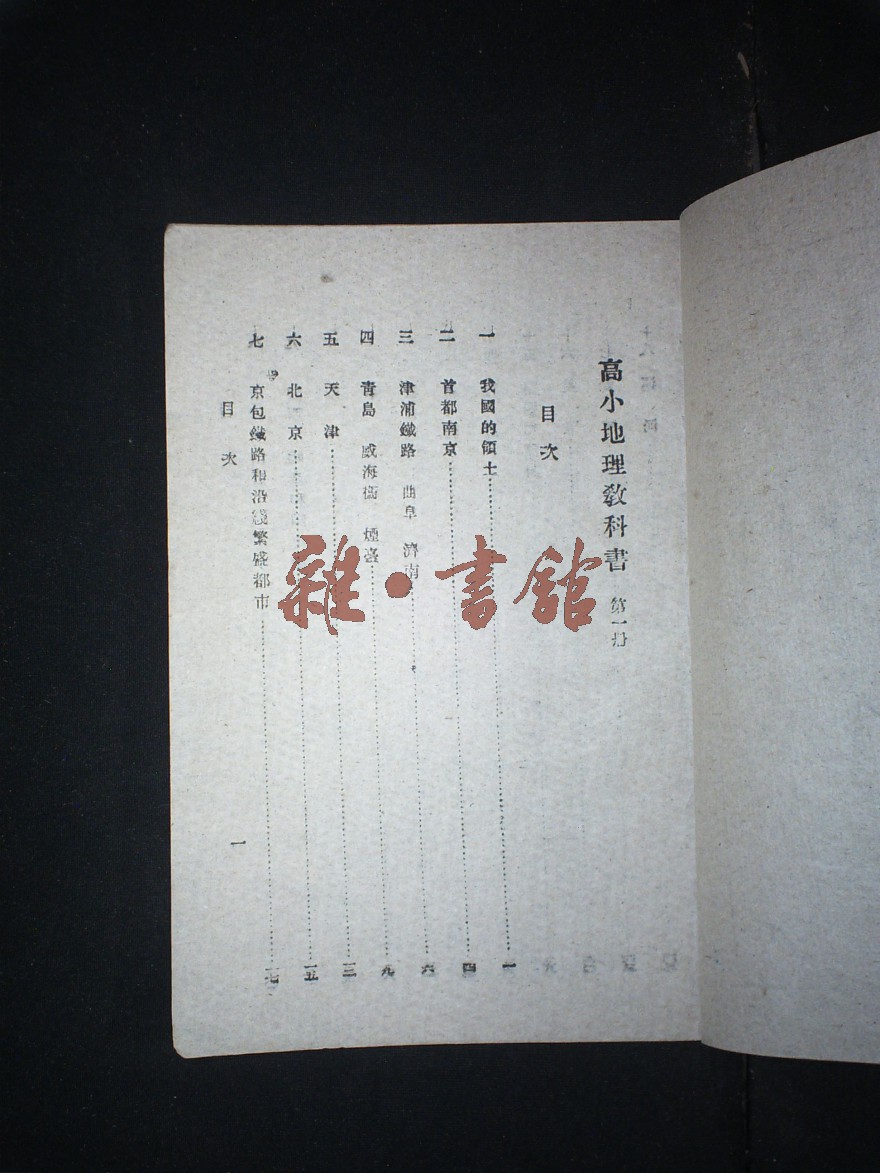 高小地理教科書 第一册
目次
一 我國的領土 一
二 首都南京 四
三 津浦鐵路 曲阜 濟南 六
四 青島 威海衛 煙臺 九
五 天津
六 北京 一五
七 京包鐵路和沿綫繁盛都市 一七
目次 一
雜·書館